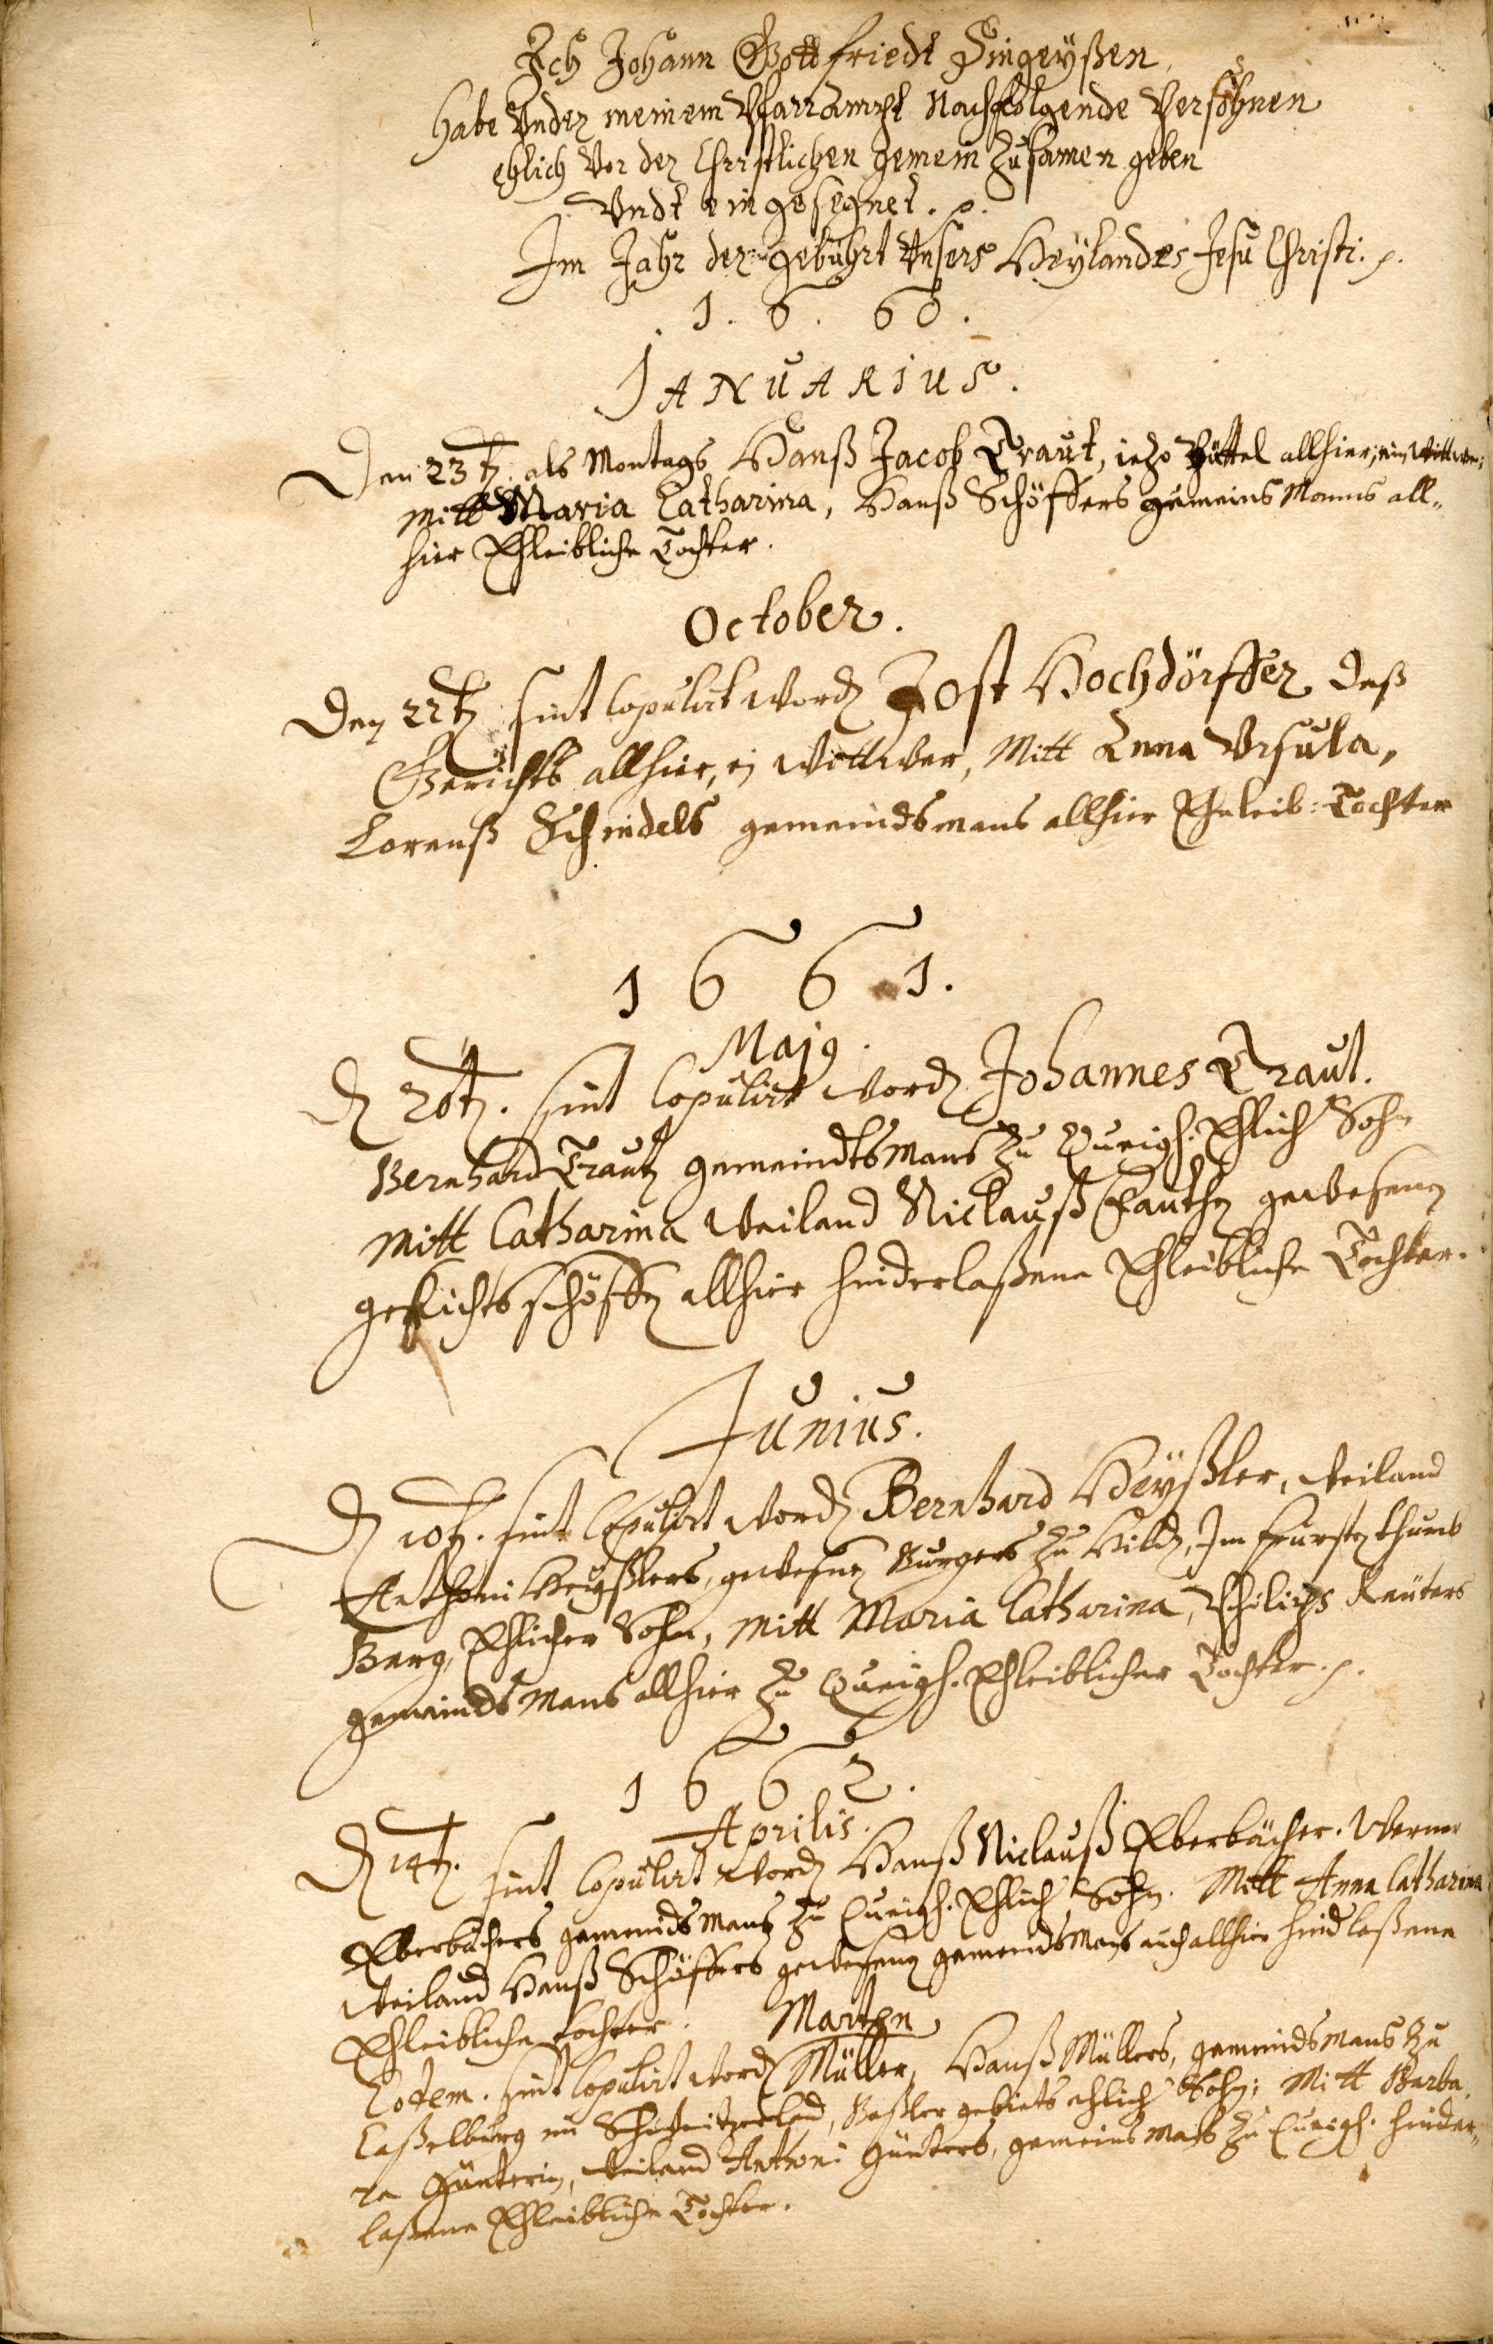 Ich Johann Gottfriedt Dingeÿßen,
habe Vnder meinem Pfarrampt Nachfolgende Persohnen
ehlich Vor der Christlichen gemein Zusamen geben
Vndt eingesegnet. p.
Im Jahr der gebuhrt Vnsers Heÿlandes Jesu Christi. p.
1. 6. 60.
JANUARIUS.
Den 23t. als Montags Hanß Jacob Traut, iezo Büttel allhier, ein Wittwer,
mitt Maria Catharina, Hanß Schöffers gemeins Manns all„
hier Ehleibliche Tochter.
October.
Den 22t sint Copulirt word Jost Hochdörffer deß
Gerichts allhier, ein Wittwer, Mitt Anna Vrsula,
Lorenß Schindels gemeindsmans allhier Eheleib: Tochter
1661.
Maj9.
D 20t. sint Copulirt word Johannes Traut.
Bernhard Trautz gemeindtsmans Zu Queigh. Ehlich Sohn
Mitt Catharina Weiland Niclauß Fauthen gewesenen
gerichtsschöffen allhier hinderlaßene Ehleibliche Tochter.
Junius.
D 10t. sint Copulirt word Bernhard Heÿßler, Weiland
Anthoni Heÿßlers, gewesnen Burgers Zu Hild, Im Fürstenthumb
Berg, Ehlicher Sohn, Mitt Maria Catharina, Philips Reuters
gemeindsMans allhier Zu Queigh. Ehleiblicher Tochter. p.
1662.
Aprilis.
D 14t. sint Copulirt word Hanß Niclauß Eberbächer. Werner
Eberbächers gemeindsMans Zu Queigh. Ehlich Sohn. Mitt Anna Catharina
Weiland Hanß Schöffers gewesenen gemeindsMans auch allhier hindlaßene
Ehleibliche tochter. Marten
Eodem. sint Copulirt word Müller, Hanß Müllers, gemeindsMans Zu
Caßelburg im Schweitzerland, Baßler gebiets ehlich Sohn; Mitt Barba„
ra Günterin, Weiland Anthoni Günters, gemeinsMans Zu Queigh. hinder„
laßene Ehleibliche Tochter.